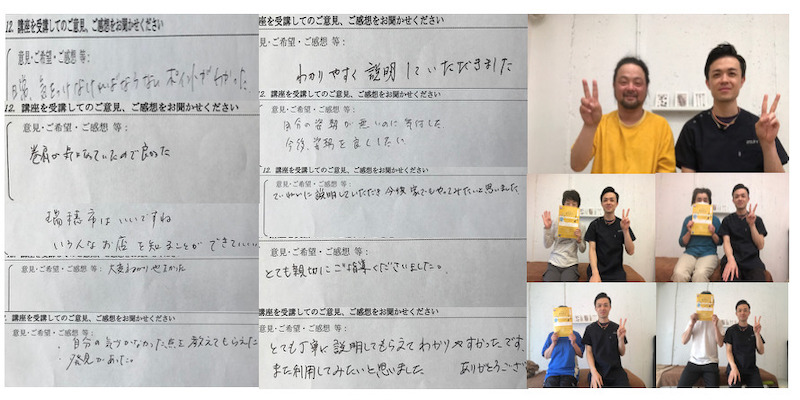 12. 講座を受講してのご意見、ご感想をお聞かせください
意見・ご希望・ご感想 等:
気をつけなければならないポイントがわかった
12. 講座を受講してのご意見、ご感想をお聞かせください
意見・ご希望・ご感想 等:
巻肩が気になっていたので良かった
瑞穂市はいいですね
いろんなお店を知ることができていい
意見・ご希望・ご感想 等: 大変わかりやすかった
講座を受講してのご意見、ご感想をお聞かせください
意見・ご希望・ご感想 等:
自分の気づかなかった点を教えてもらえた
発見があった。
講座を受講してのご意見、ご感想をお聞かせください
見・ご希望・ご感想 等:
わかりやすく説明していただきました
12. 講座を受講してのご意見、ご感想をお聞かせください
意見・ご希望・ご感想 等:
自分の姿勢が悪いのに
今後、姿勢を良くしたい
12. 講座を受講してのご意見、ご感想をお聞かせください
意見・ご希望・ご感想 等:
ていねいに説明していただき 今後家でもやってみたいと思いました
意見・ご希望・ご感想 等:
とても親切にご指導くださいました。
講座を受講してのご意見、ご感想をお聞かせください
意見・ご希望・ご感想 等:
とても丁寧に説明してもらえてわかりやすかったです。
また利用してみたいと思いました ありがとうござ